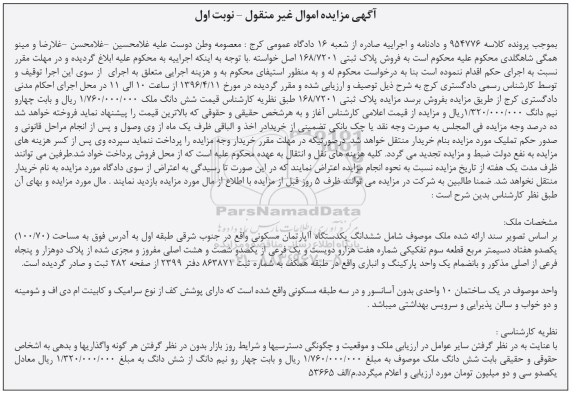 آگهی مزایده اموال غیر منقول - نوبت اول
بموجب پرونده کلاسه ۹۵۴۷۷۶ و دادنامه و اجراییه صادره از شعبه ۱۶ دادگاه عمومی کرج : معصومه وطن دوست علیه غلامحسین -غلامحسن -غلارضا و مینو
همگی شاهگلدی محکوم علیه محکوم است به فروش پلاک ثبتی ۱۶۸/۷۲۰۱ اصل خواسته .با توجه به اینکه اجراییه به محکوم علیه ابلاغ گردیده و در مهلت مقرر
نسبت به اجرای حکم اقدام ننموده است بنا به درخواست محکوم له و به منظور استیفای محکوم به و هزینه اجرایی متعلق به اجرای از سوی این اجرا توقیف و
توسط کارشناس رسمی دادگستری کرج به شرح ذیل توصیف و ارزیابی شده و مقرر گردیده در مورخ ۱۳۹۶/۴/۱۱ از ساعت ۱۰ الی ۱۱ در محل اجرای احکام مدنی
دادگستری کرج از طریق مزایده بفروش برسد مزایده پلاک ثبتی ۱۶۸/۷۲۰۱ طبق نظریه کارشناس قیمت شش دانگ ملک ۱/۷۶۰/۰۰۰/۰۰۰ ریال و بابت چهارو
نیم دانگ ۱/۳۲۰/۰۰۰/۰۰۰ریال و مزایده از قیمت اعلامی کارشناس آغاز و به هرشخص حقیقی و حقوقی که بالاترین قیمت را پیشنهاد نماید فروخته خواهد شد
ده درصد وجه مزایده فی المجلس به صورت وجه نقد یا چک بانکی تضمینی از خریدار اخذ و الباقی ظرف یک ماه از وی وصول و پس از انجام مراحل قانونی و
صدور حکم تملیک مورد مزایده بنام خریدار منتقل خواهد شد. درصورتیکه در مهلت مقرر خریدار وجه مزایده را پرداخت ننماید سپرده وی پس از کسر هزینه های
مزایده به نفع دولت ضبط و مزایده تجدید می گردد. کلیه هزینه های نقل و انتقال به عهده محکوم علیه است که از محل فروش پرداخت خواد شد.طرفین می توانند
ظرف مدت یک هفته از تاریخ مزایده نسبت به نحوه انجام مزایده اعتراض نمایند که در این صورت تا رسیدگی به اعتراض از سوی دادگاه مورد مزایده به نام خریدار
منتقل نخواهد شد. ضمنا طالبین به شرکت در مزایده می توانند ظرف ۵ روز قبل از مزایده با اطلاع از مال مورد مزایده بازدید نمایند . مال مورد مزایده و بهای آن
طبق نظر کارشناس بدین شرح است :
مشخصات ملک:
بر اساس تصویر سند ارائه شده ملک موصوف شامل ششدانگ یکدستگاه آپارتمان مسکونی واقع در جنوب شرقی طبقه اول به آدرس فوق به مساحت (۱۰۰/۷۰)
یکصدو هفتاد دسیمتر مربع قطعه سوم تفکیکی شماره هفت هزارو دویست و یک فرعی از یکصدو شصت و هشت اصلی مفروز و مجزی شده از پلاک دوهزار و پنجاه
فرعی از اصلی مذکور و بانضمام یک واحد پارکینگ و انباری واقع در طبقه همکف به شماره ثبت ۸۶۳۸۷۲ دفتر ۲۳۹۹ از صفحه ۲۸۲ ثبت و صادر گردیده است.
واحد موصوف در یک ساختمان ۱۰ واحدی بدون آسانسور و در سه طبقه مسکونی واقع شده است که دارای پوشش کف از نوع سرامیک و کابینت ام دی اف و شومینه
و دو خواب و سالن پذیرایی و سرویس بهداشتی میباشد .
نظریه کارشناسی :
با عنایت به در نظر گرفتن سایر عوامل در ارزیابی ملک و موقعیت و چگونگی دسترسیها و شرایط روز بازار بدون در نظر گرفتن هر گونه واگذاریها و بدهی به اشخاص
حقوقی و حقیقی بابت شش دانگ ملک موصوف به مبلغ ۱/۷۶۰/۰۰۰/۰۰۰ ریال و بابت چهار رو نیم دانگ از شش دانگ به مبلغ ۱/۳۲۰/۰۰۰/۰۰۰ ریال معادل
یکصدو سی و دو میلیون تومان مورد ارزیابی و اعلام میگردد.م/الف ۵۳۶۶۵
ParsNamadData